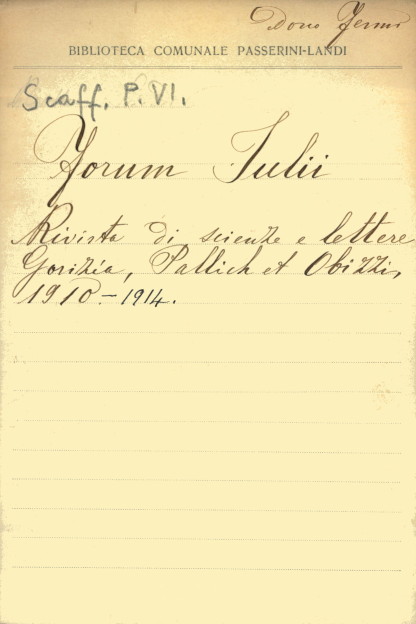 Dono Fermi
BIBLIOTECA COMUNALE PASSERINI-LANDI
Scaff. P. VI.
Forum Iulii
Rivista di scienze e lettere
Gorizia, Pallich et Obizzi,
1910-1914.